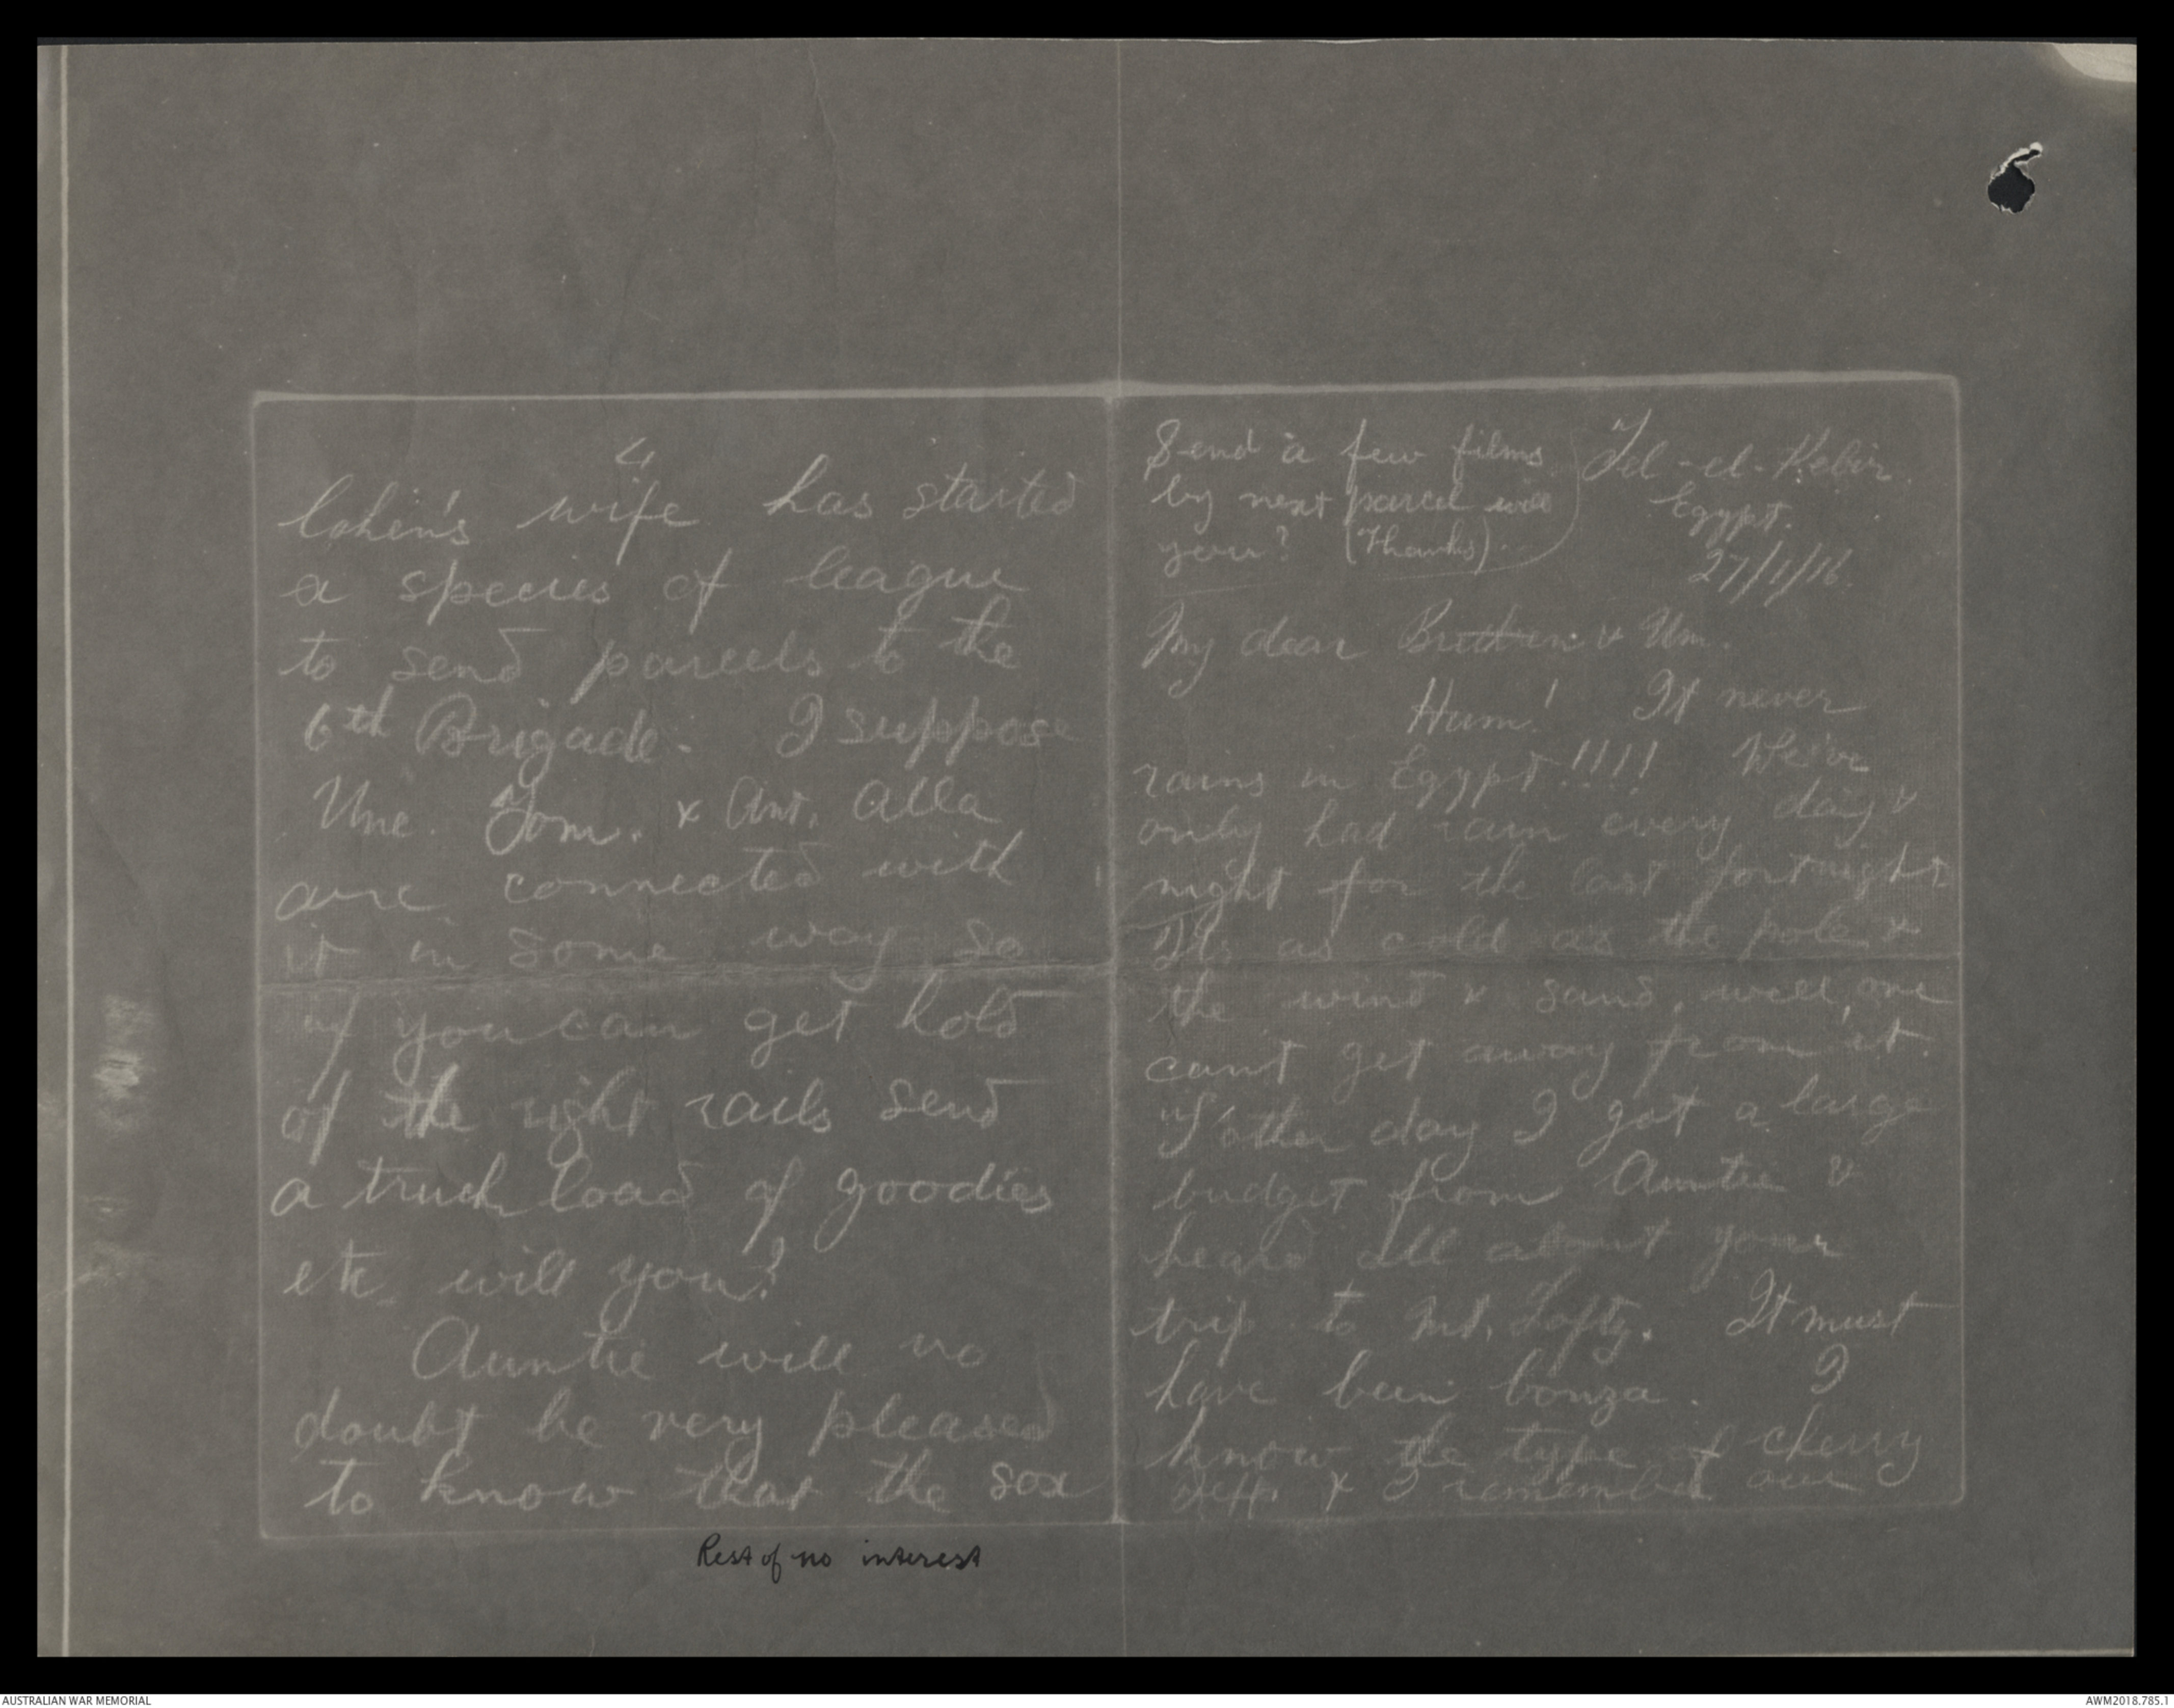 4
Cohen's wife has started
a species of league
to send parcels to the
6th Brigade. I suppose
Unc. Tom. & Ant. Alla
are connected with
it in some way so
if you can get hold
of the right rails send
a truck load of goodies
etc. will you?
Auntie will no
doubt be very pleased
to know that the sox
Send a few films
by next parcel will
you? (Thanks).
Tel-el-Kebir.
Egypt.
27/1/16.
My dear & Um.
Hum! It never
rains in Egypt!!!! We've
only had rain every day &
night for the last fortnight
It's as cold as the pole &
the wind & sand, well, one
can't get away from it.
T'other day I got a large
budget from Auntie &
heard all about your
trip to Mt. Lofty. It must
have been bonza. I
know the type of cherry
& I remember our
Rest of no interest
AUSTRALIAN WAR MEMORIAL
AWM2018.785.1